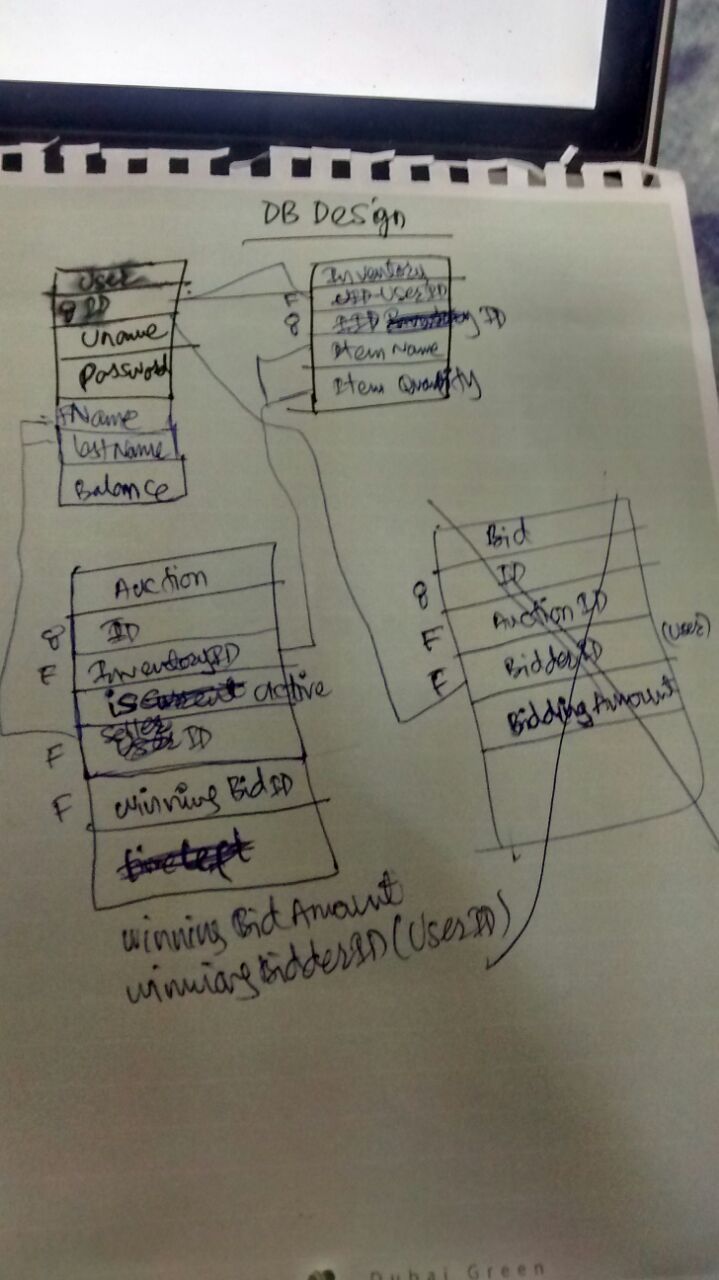 DB Design
User
8 ID
Uname
Password
FName
lastName
Balance
Inventory
F UserID
8 IID ID
Item Name
Item Quantity
Auction
8 ID
F InventoryID
is active
Seller
F User ID
F winning BidID
winning Bid Amount
winning BidderID (UserID)
Bid
8 ID
F AuctionID
F BidderID (User)
Bidding Amount
Dubai Green